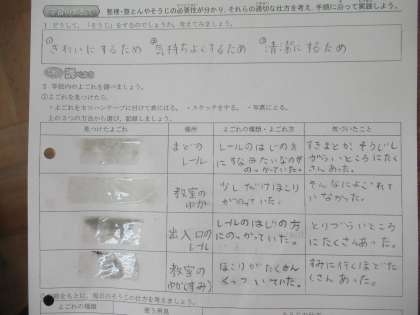 整理・整とんやそうじの必要性が分かり、それらの適切な仕方を考え、手順に沿って実践しよう。
1 どうして、そうじをするのでしょうか。考えてみましょう。
① きれいにするため ② 気持ちよくするため ③ 清潔にするため
調べよう
2 学校内のよごれを調べましょう。
① よごれを見つけたら、
・よごれをセロハンテープに付けて表にはる。 ・スケッチをする。 ・写真にとる。
上の3つの方法から選び、記録しましょう。
見つけたよごれ 場所 よごれの種類・よごれ方 気づいたこと
まどのレール
レールのはじの方
にすな
のっかっていた。
すきまとか、そうじし
がらいところにたく
さんあった。
教室のゆか
少しだけほこり
がのっていた。
そんなによごれて
いなかった。
出入口のレール
レールのはじの方
にのっかっていた。
とりづらいところ
にたくさんあった。
教室のゆか(すみ)
ほこりがたくさん
ていた。
すみに行くほどた
くさんあった。
をもとに、毎日のそうじの仕方を考えましょう。
よごれの種類 使う用具